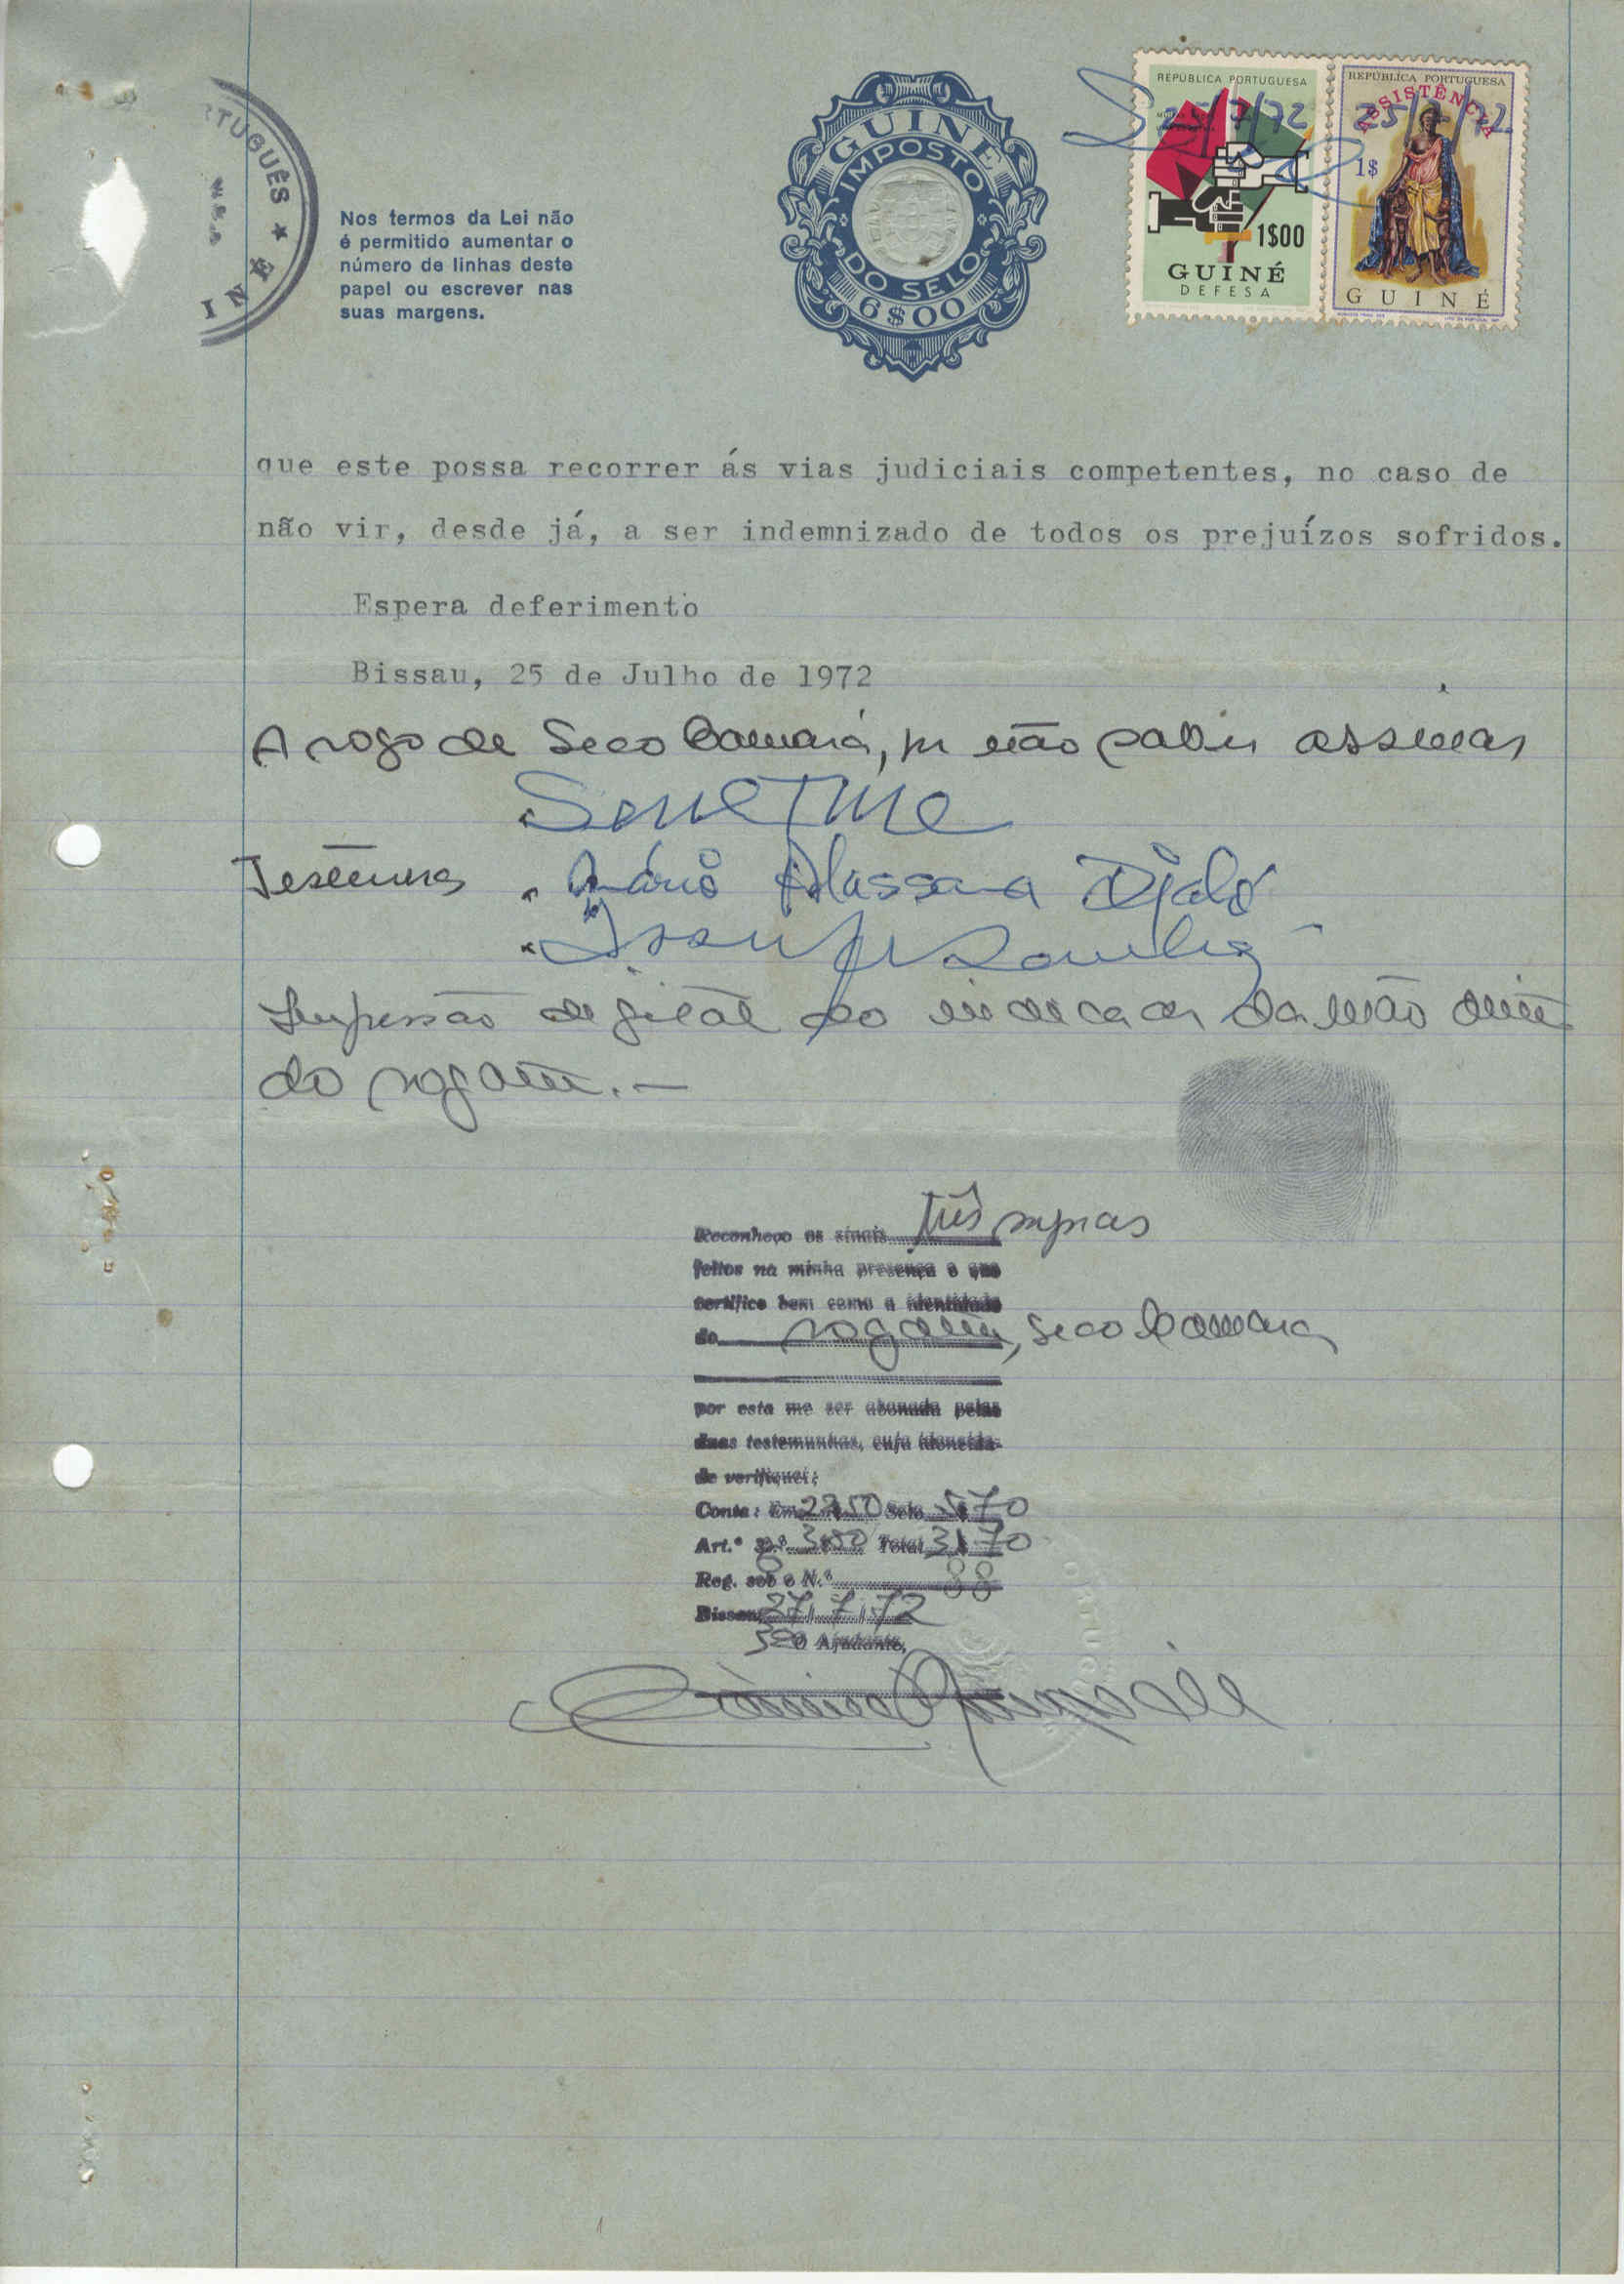 RTUGUÊS ★
INÉ
Nos termos da Lei não
é permitido aumentar o
número de linhas deste
papel ou escrever nas
suas margens.
GUINÉ
IMPOSTO
DO SELO
6$00
REPÚBLICA PORTUGUESA
25/7/72
1$00
GUINÉ
DEFESA
REPÚBLICA PORTUGUESA
ASSISTÊNCIA
25/7/72
1$
GUINÉ
que este possa recorrer ás vias judiciais competentes, no caso de
não vir, desde já, a ser indemnizado de todos os prejuízos sofridos.
Espera deferimento
Bissau, 25 de Julho de 1972
A rogo de Seco Camará, por não saber assinar
Mário Alassana Djaló
Impressão digital do indicador da mão direita
do rogante.—
Reconheço os sinais três supras
feitos na minha presença o que
certifico bem como a identidade
do rogante, Seco Camará
por esta me ser abonada pelas
duas testemunhas, cuja idoneida-
de verifiquei;
Conta: Em. 22$50 Selo 5$70
Art.º 3$50 Total 31$70
Reg. sob o N.º 88
Bissau, 27/7/72
O Ajudante,